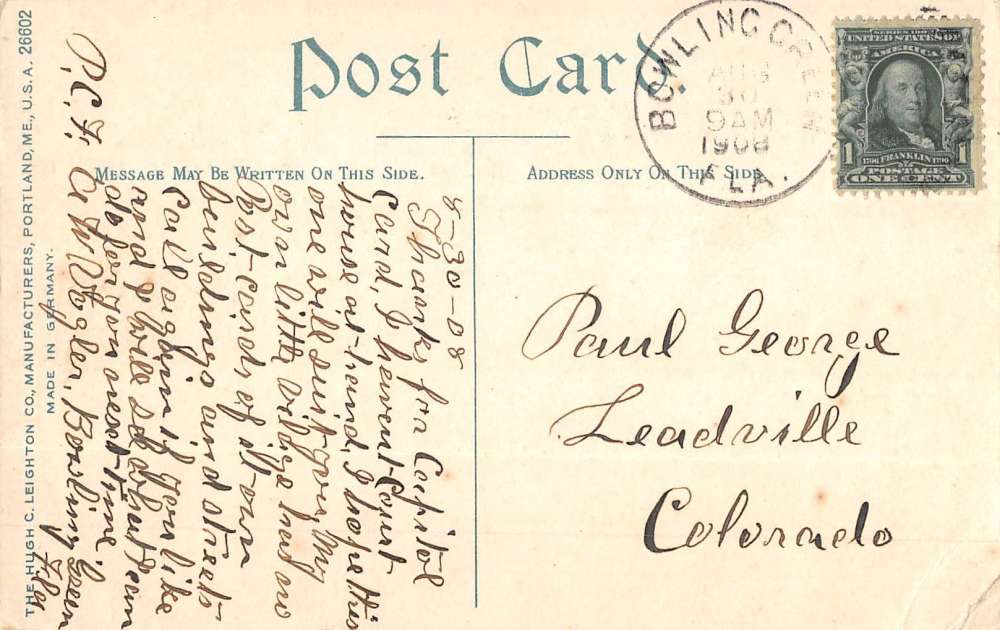 Post Card
MESSAGE MAY BE WRITTEN ON THIS SIDE.
ADDRESS ONLY ON THIS SIDE
BOWLING GREEN
AUG
30
9 AM
1908
FLA.
SERIES 1902
UNITED STATES OF
AMERICA
1 1706 FRANKLIN 1790 1
POSTAGE
ONE CENT
8-30-08
Thanks fra Capitol
Card, I havent Court
house at hend, I hope this
one will suit you, My
own little vilige has no
Post-cards of it own
buildings and streets
Call again if you like
and I will se what I can
do for you next time
A W Vogler, Bowling Green
Fla
P.C.F,
Paul George
Leadville
Colorado
THE HUGH C. LEIGHTON CO., MANUFACTURERS, PORTLAND, ME., U.S.A. 26602
MADE IN GERMANY.